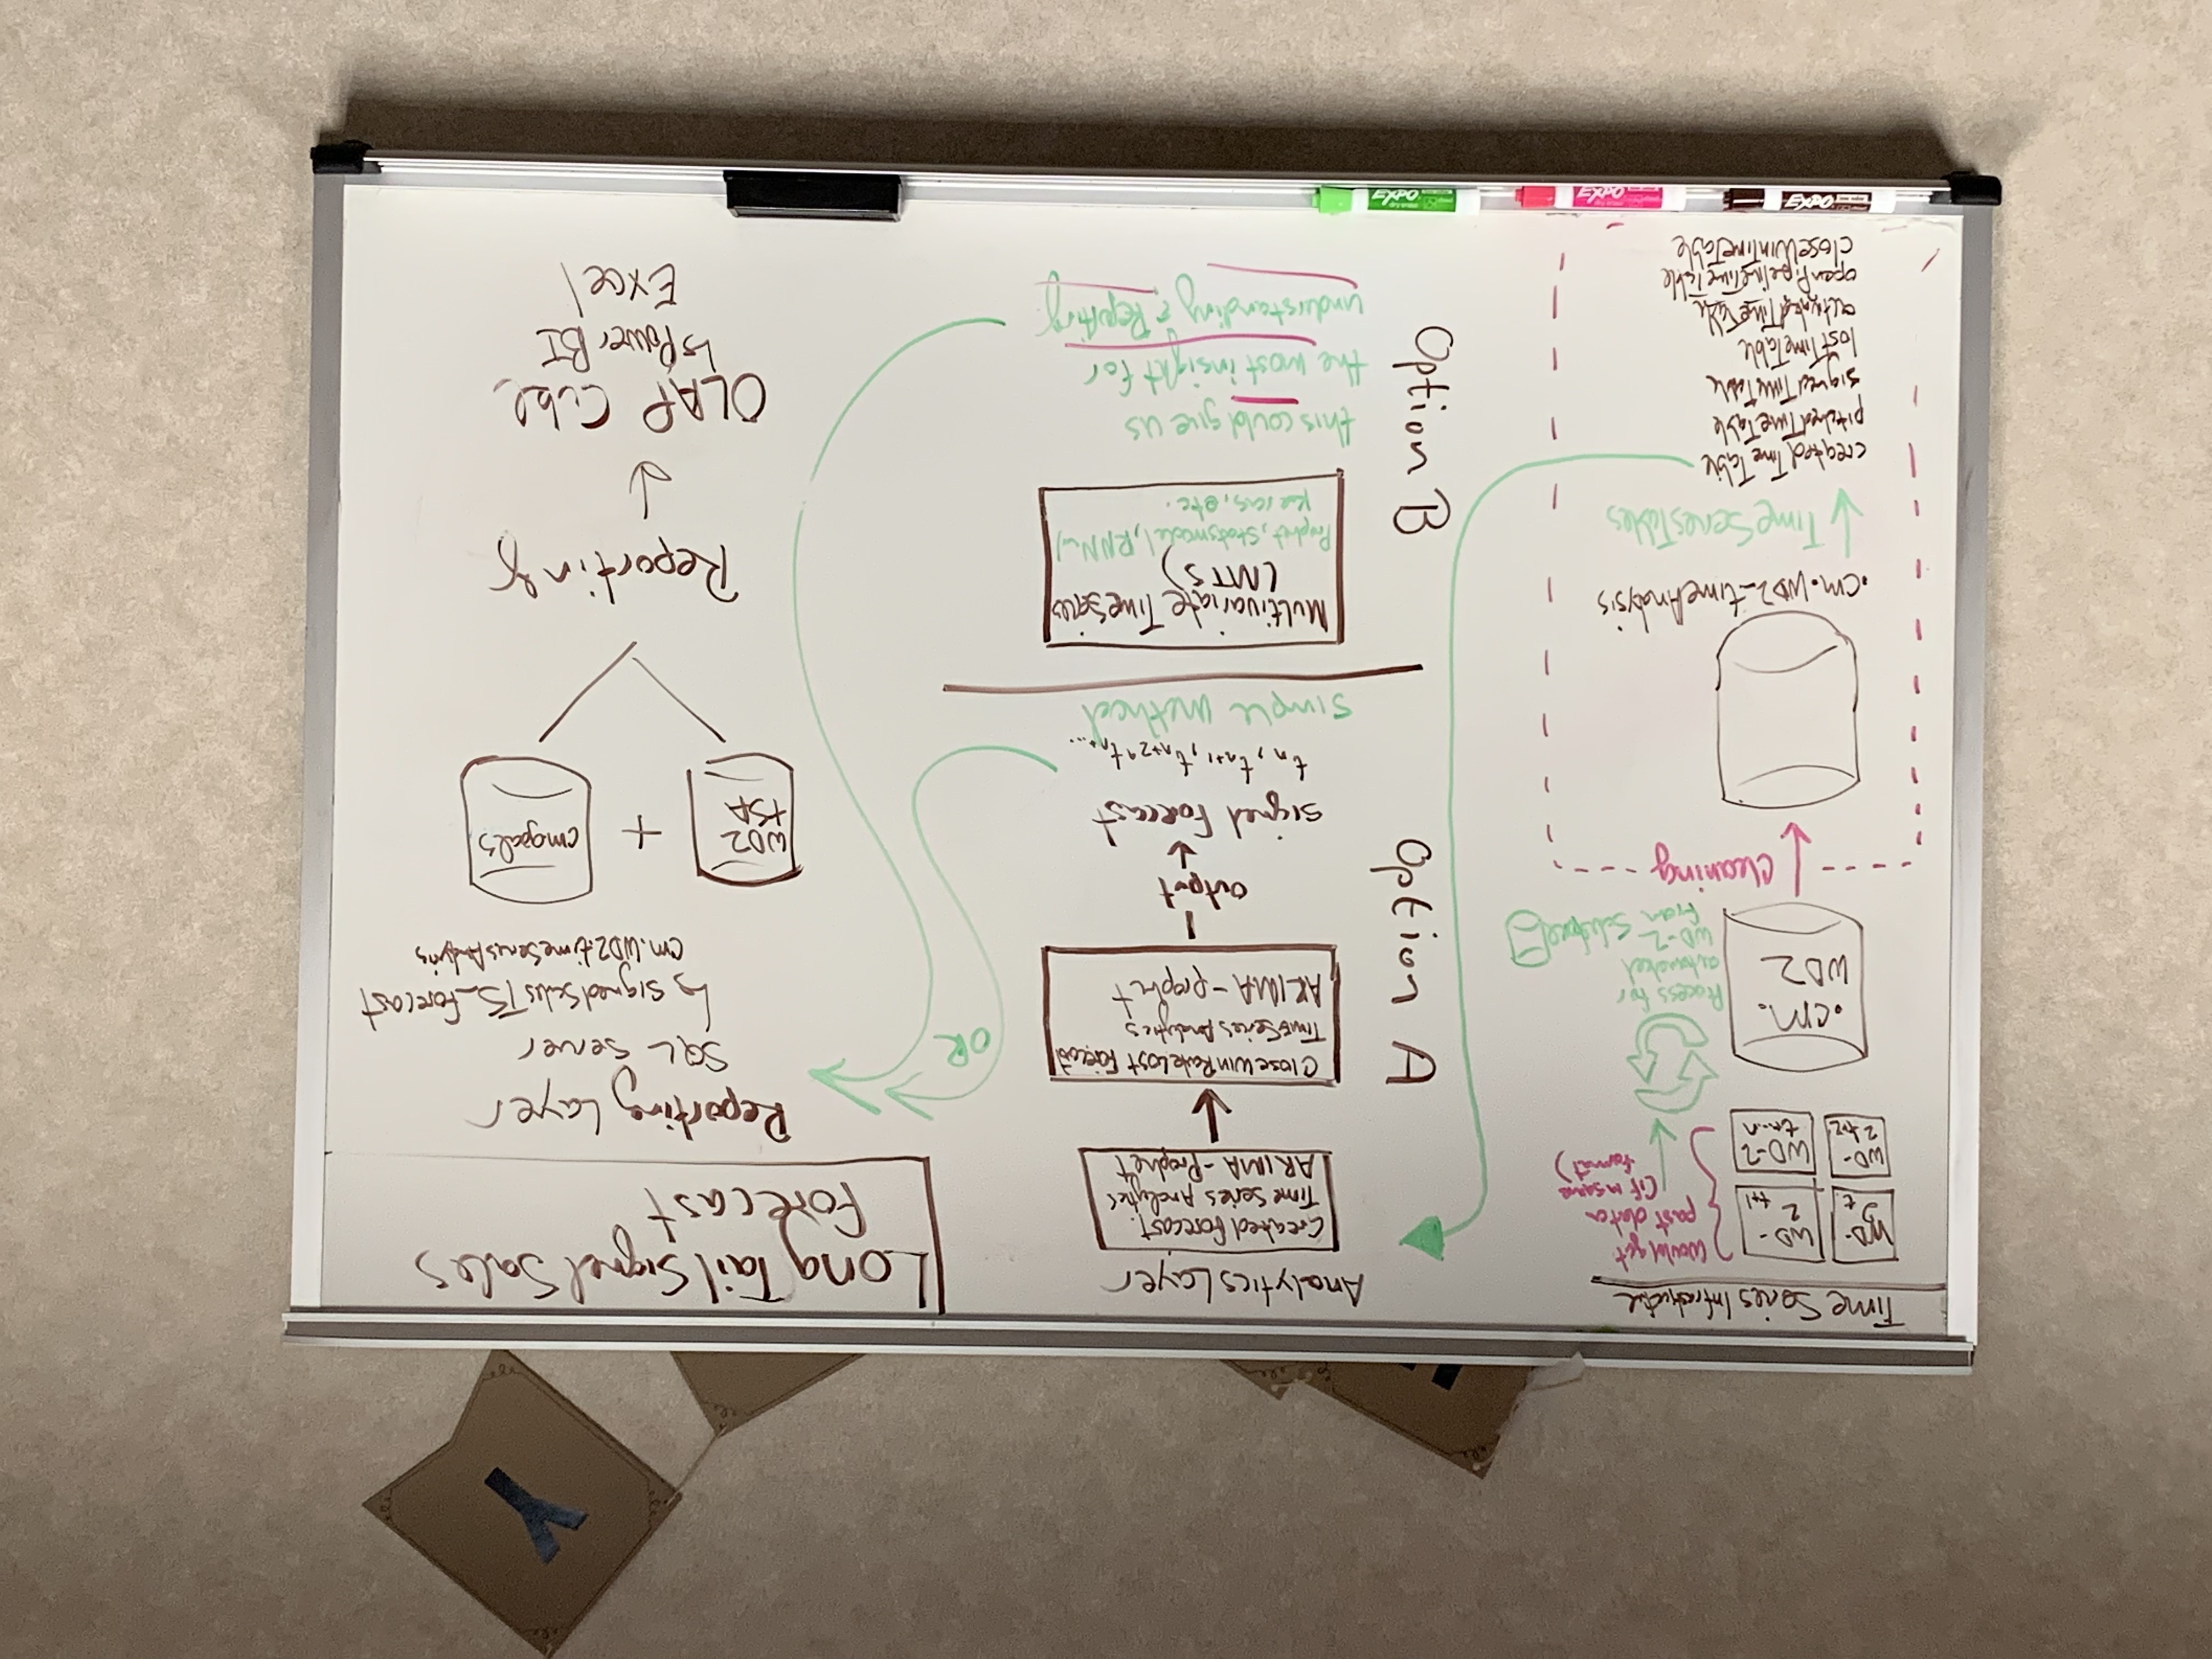 Y
Time Series Infrastructure
WD-
2 t
WD-
2 t+1
WD-
2 t+2
WD-2
tn...n
Would get
past data
(if in same
format)
.cm.
WD2
Process for
automated
WD-2
from Salesforce
Cleaning
.cm.WD2_timeAnalysis
TimeSeriesTables
createdTimeTable
pitchedTimeTable
signedTimeTable
lostTimeTable
activatedTimeTable
openPipelineTimeTable
closeWinTimeTable
Analytics Layer
Option A
Created forecast.
Time Series Analytics
ARIMA - Prophet
CloseWinRateLost Forecast
TimeSeries Analytics
ARIMA - prophet
output
signed Forecast
tn, tn+1, tn+2, tn+...
simple method
Option B
Multivariate TimeSeries
(MTS)
Prophet, Statsmodel, RNN w/
Keras, etc.
this could give us
the most insight for
understanding & Reporting
OR
Long Tail Signed Sales
Forecast
Reporting Layer
SQL Server
signedSalesTS_Forecast
cm.WD2.timeSeriesAnalysis
WD2
tSA
+
cmgoals
Reporting
OLAP Cube
Power BI
Excel
EXPO
EXPO
EXPO